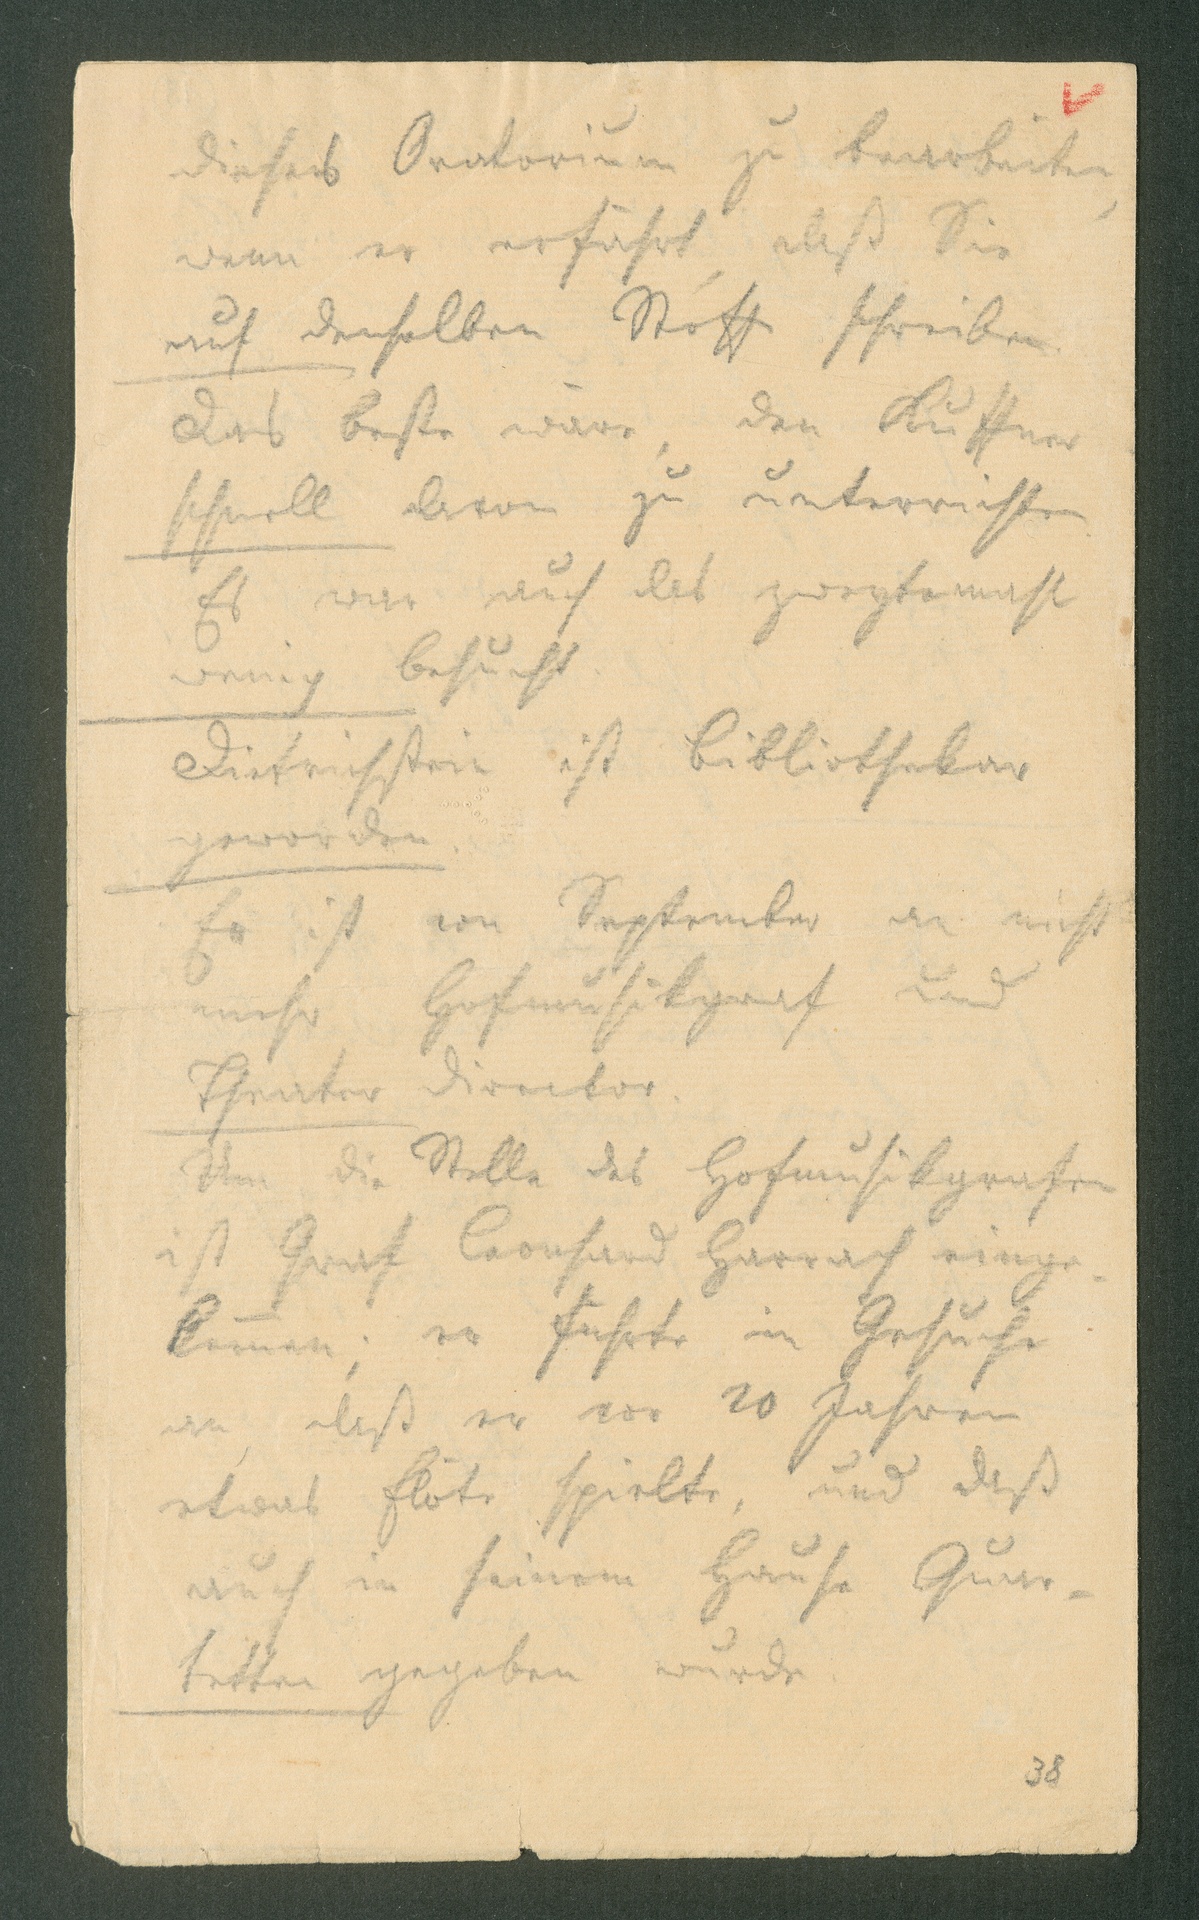 dieses Oratorium zu bearbeiten,
wenn er erfährt, daß Sie
auf denselben Stoff schreiben.
Das beste wäre, den Kuffner
schnell davon zu unterrichten
Es war auch das zweytemahl
wenig besucht.
Dietrichstein ist Bibliothekar
geworden.
Er ist von September an nicht
mehr Hofmusikgraf und
Theater director.
Um die Stelle des Hofmusikgrafen
ist Graf Leonhard Harrach einge-
kom̅en; er führte in Gesuche
an, daß er vor 20 Jahren
etwas Flöte spielte, und daß
auch in seinem Hause Quar-
tetten gegeben wurde.
38